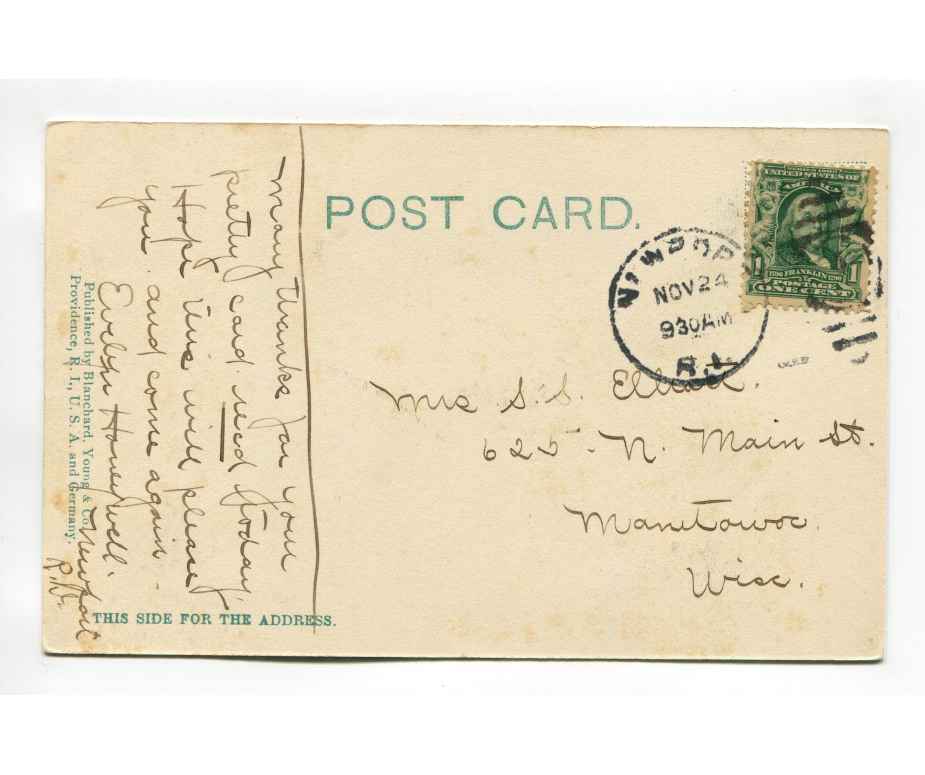 POST CARD.
SERIES 1902
UNITED STATES OF
AMERICA
1 FRANKLIN 1
POSTAGE
ONE CENT
NEWPORT
NOV 24
930AM
R.I.
Mrs S. S.
625 N. Main St.
Manitowoc
Wisc.
Many thanks for you
pretty card recd today.
Hope this will please
you and come again.
Evelyn Honeywell.
Newport
R.I.
Published by Blanchard, Young & Co.
Providence, R. I., U. S. A. and Germany.
THIS SIDE FOR THE ADDRESS.